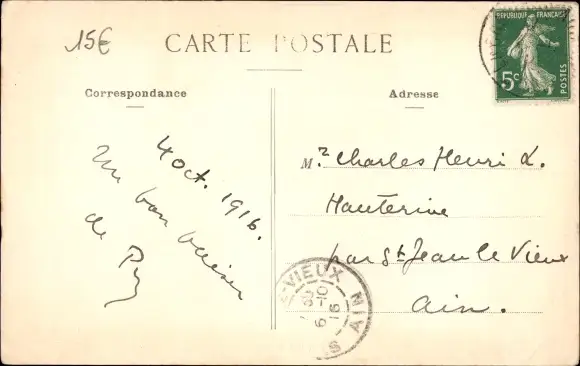 15€
CARTE POSTALE
RÉPUBLIQUE FRANÇAISE
5c
POSTES
Correspondance
Adresse
4 oct. 1916.
Un bon baiser
de
Mr Charles Henri L.
Hauterive
par St Jean le Vieux
Ain.
-VIEUX
AIN
6-10
16